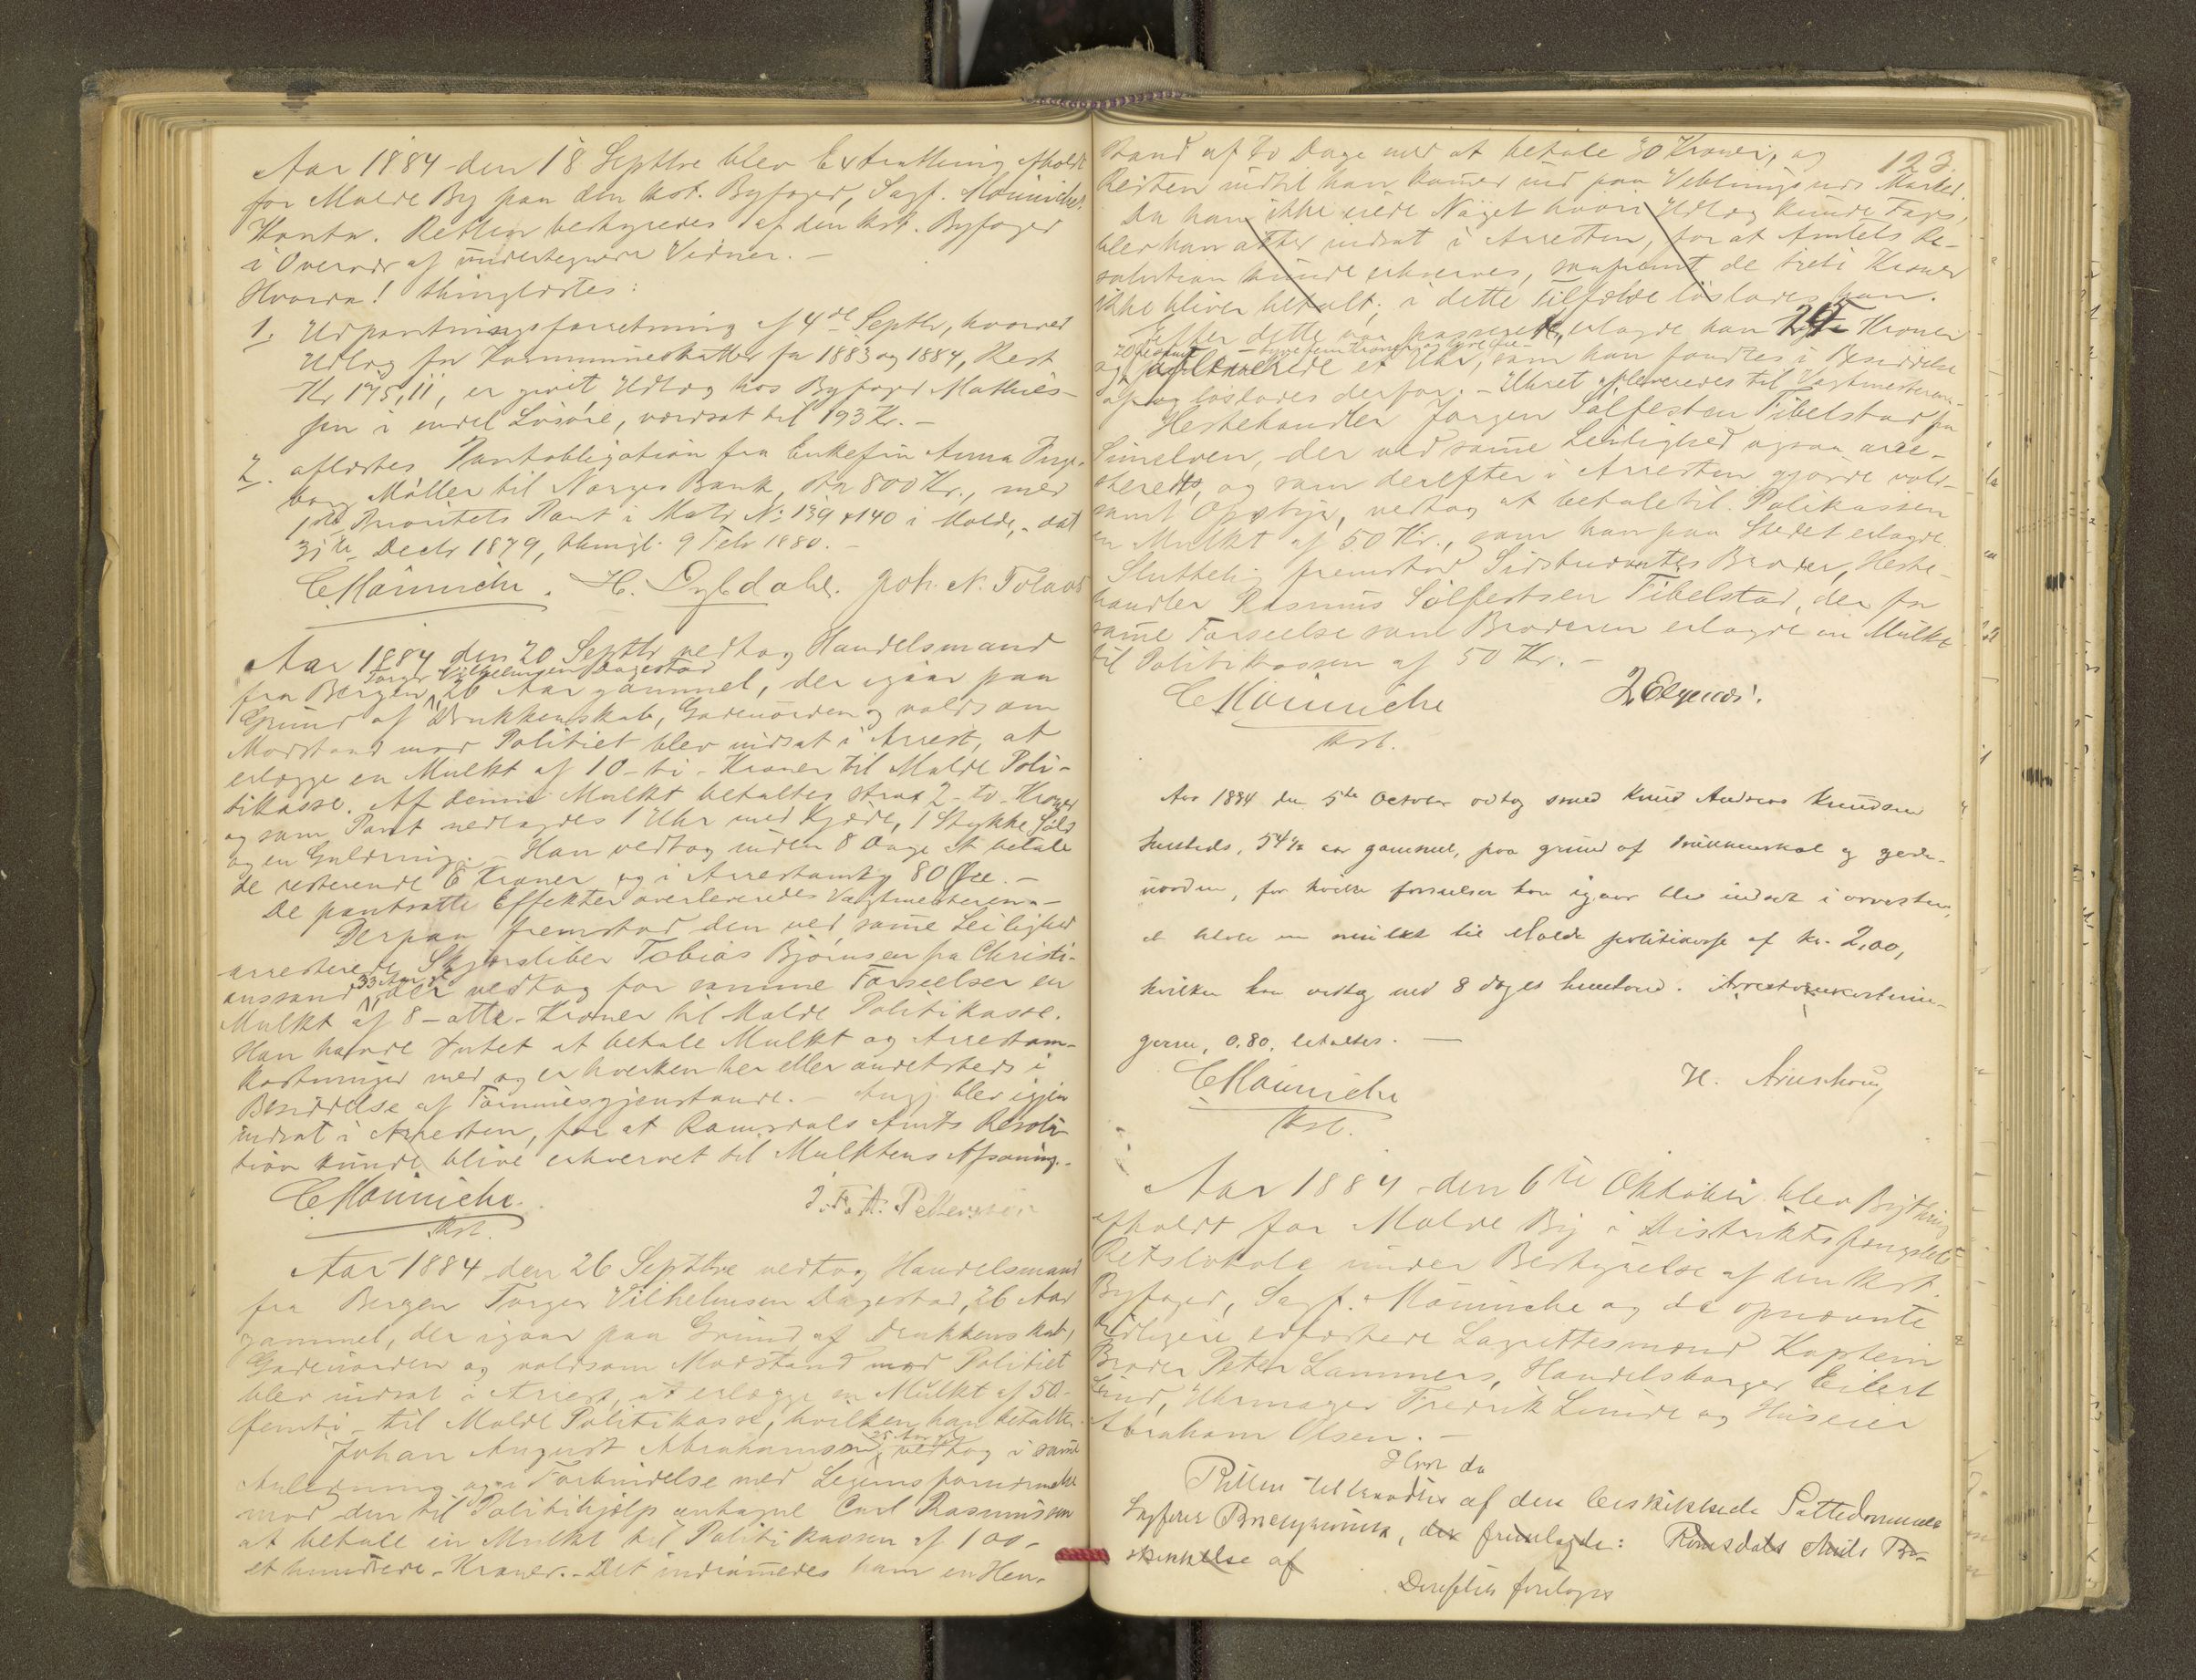 Aar 1884 den 18 Septbre blev Extrathing afholdt
for Molde By paa den kst. Byfoged, Sagf. Mönniches
Kontor. Retten bestyredes af den kst. Byfoged
i Overvær af undertegnede Vidner. –
Hvorda! thinglæstes:
1. Udpantningsforretning af 4de Septbr, hvorved
Udlæg for Kommuneskatter for 1883 og 1884, Rest
Kr 175,11, er givet Udlæg hos Byfoged Mathies-
sen i endel Lösöre, værdsat til 193 Kr. –
2. aflæstes Pantobligation fra Enkefru Anna Inge-
borg Möller til Norges Bank, str 800 Kr., med
1ste Prioritets Pant i Matr No 139 & 140 i Molde, dat
31te Decbr 1879, thingl. 9 Febr 1880. –
C Mönniche. H. Dybdahl. Joh. N. Tolaas
Aar 1884 den 20 Septbr vedtog Handelsmand
Torger Vilhelmsen Dagestad
fra Bergen, 26 Aar gammel, der igaar paa
Grund af Drukkenskab, Gadeuorden og voldsom
Modstand mod Politiet blev indsat i Arrest, at
erlægge en Mulkt af 10 – ti – Kroner til Molde Poli-
tikasse. Af denne Mulkt betaltes strax 2 – to – Kroner
og som Pant nedlagdes 1 Uhr med Kjede, 1 Stykke Sölv
og en Guldring. – Han vedtog inden 8 Dage at betale
de resterende 8 Kroner og i Arrestomkg 80 Øre. –
De pantsatte Effekter overleveredes Vægtmesteren. –
Derpaa fremstod den ved samme Leilighed
arresterede Skjærsliber Tobias Björnsen fra Christi-
anssand, 33 Aar gl. der vedtog for samme Forseelser en
Mulkt af 8 – otte – Kroner til Molde Politikasse.
Han havde Intet at betale Mulkt og Arrestom-
kostninger med og er hverken her eller andetsteds i
Besiddelse af Formuesgjenstande. – Angj. blev igjen
indsat i Arresten, for at Romsdals Amts Resolu-
tion kunde blive erhvervet til Mulktens Afsoning. –
C Mönniche.
kst.
J. F. A. Pettersen
Aar 1884 den 26 Septbre vedtog Handelsmand
fra Bergen Torger Vilhelmsen Dagestad, 26 Aar
gammel, der igaar paa Grund af Drukkenskab,
Gadeuorden og voldsom Modstand mod Politiet
blev indsat i Arrest, at erlægge en Mulkt af 50 –
femti – til Molde Politikasse, hvilken han betalte.
Johan August Abrahamsen, 25 Aar gl. vedtog i samme
Anledning og i Forbindelse med Legemsfornærmelse
mod den til Politihjelp antagne Carl Rasmussen
at betale en Mulkt til Politikassen af 100 –
et hundrede – Kroner. – Det indrömmedes ham en Hen-
123.
stand af to Dage med at betale 30 Kroner, og
Resten indtil han kommer ind paa Veblungsnæs Marked.
Da han ikke eiede Noget hvori Udlæg kunde Tages,
blev han atter indsat i Arresten, for at Amtets Re-
solution kunde erhverves, saafremt de treti Kroner
ikke bliver betalt; i dette Tilfælde löslades han.
Efter dette var passeret, erlagde han 25 Kroner
20 – tyve fem Kroner og tyve Öre –
og afleverede et Uhr, som han fandtes i Besiddelse
af og löslades derfor. – Uhret afleveredes til Vægtmesteren. –
Hestehandler Jörgen Sölfestsen Tibelstad fra
Sunelven, der ved samme Leilighed ogsaa arre-
steredes, og som derefter i Arresten gjorde vold-
somt Opstyr, vedtog at betale til Politikassen
en Mulkt af 50 Kr., som han paa Stedet erlagde.
Sluttelig fremstod Sidstnævntes Broder, Heste-
handler Rasmus Sölfestsen Tibelstad, der for
samme Forseelse som Broderen erlagde en Mulkt
til Politikassen af 50 Kr. –
C Mönniche
kst.
Aar 1884 den 5te October vedtog smed Knud Andreas Knudsen
hersteds, 54 1/2 aar gammel, paa grund af drukkenskab og gade-
uorden, for hvilke forseelser han igaar blev indsat i arresten,
at betale en mulkt til Molde politikasse af kr. 2,00,
hvilken han vedtog med 8 dages henstand. Arrestomkostnin-
gerne, 0.80, betaltes. –
C Mönniche
kst.
Aar 1884 den 6te Oktober blev Bything
afholdt for Molde By i Distriktsfængslets
Retslokale under Bestyrelse af den kst.
Byfoged, Sagf. Mönniche og de opnævnte
tidligere edfæstede Lagrettesmænd Kaptein
Broder Peter Lammers, Handelsborger Eilert
Lund, Uhrmager Fredrik Lunde og Huseier
Abraham Olsen. –
Hvor da
Retten tiltraadtes af den beskikkede Sættedommer
Sagförer , der fremlagde: Romsdals Amts Be-
skikkelse af
Derefter foretoges